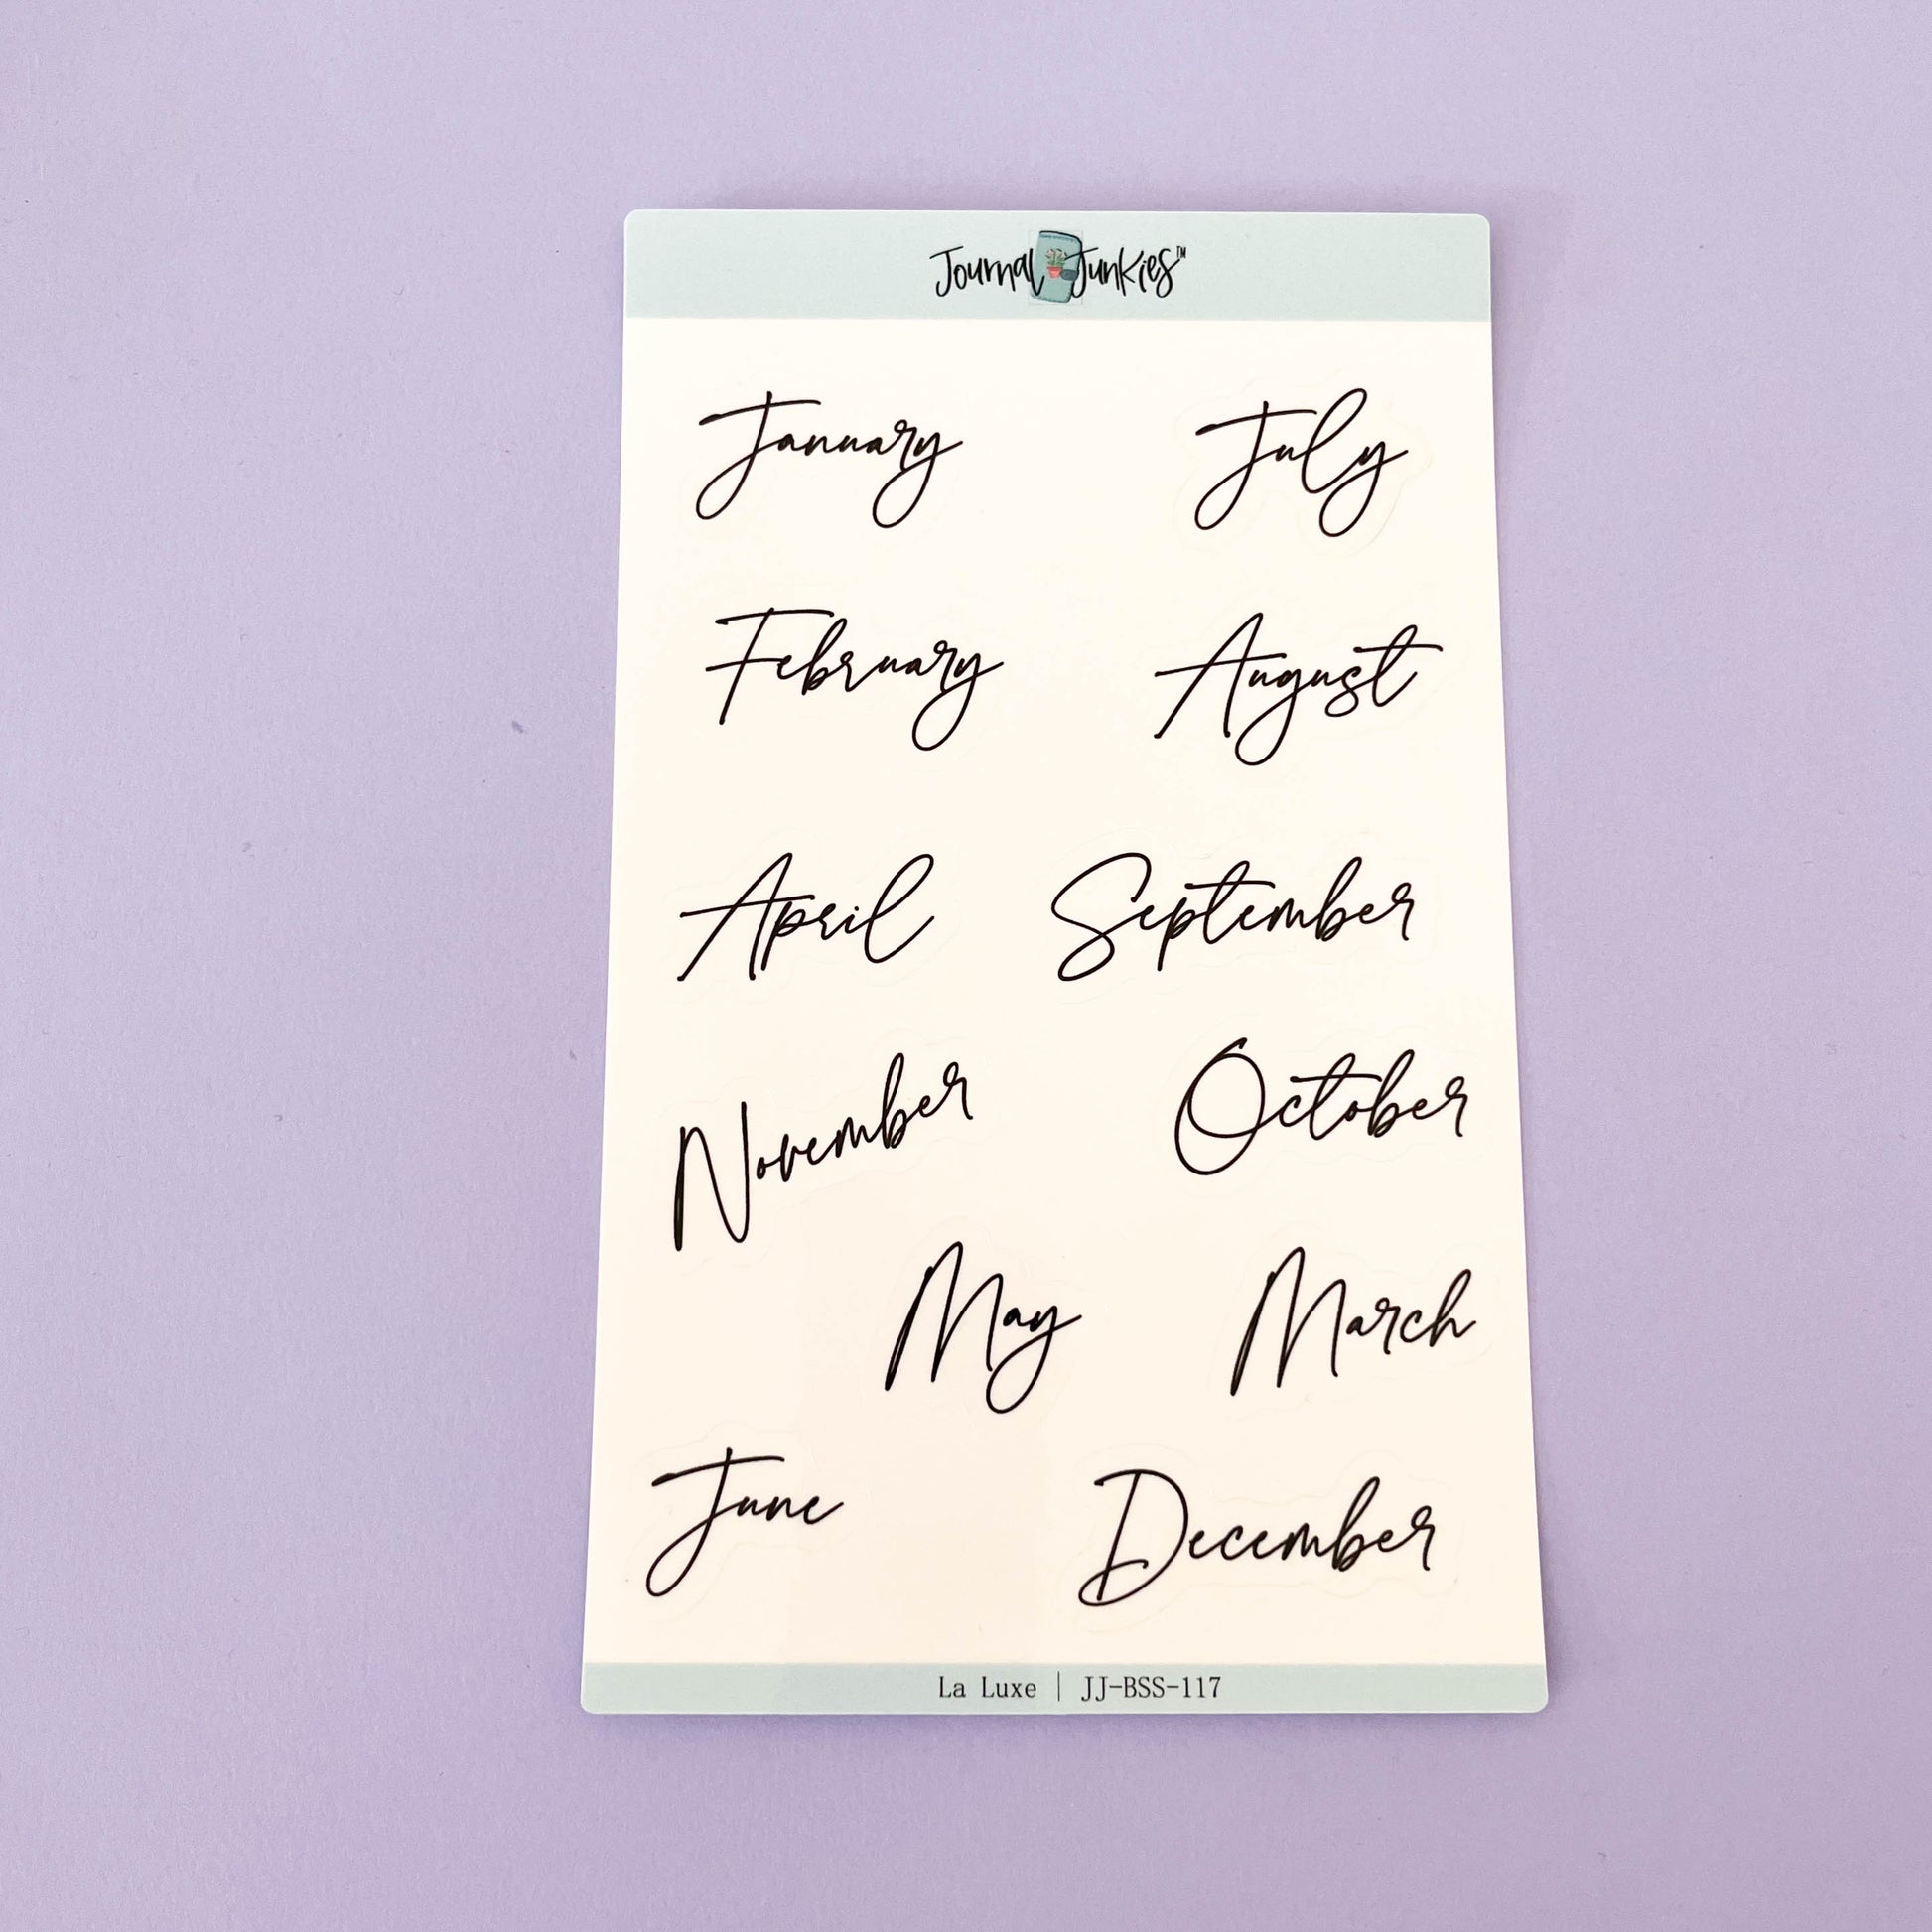 Journal Junkies™
January July
February August
April September
November October
May March
June December
La Luxe | JJ-BSS-117